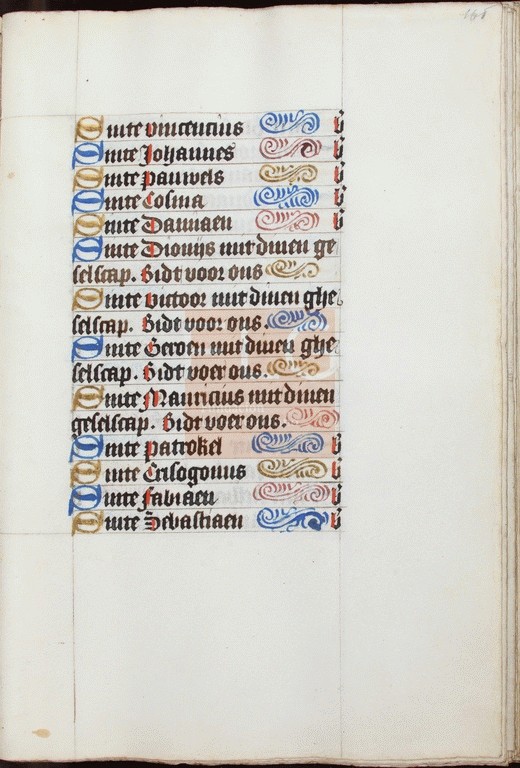 Sinte vincencius b
Sinte Johannes b
Sinte pauwels b
Sinte Cosma b
Sinte Damiaen b
Sinte Dionijs mit dinen ge
selscap. Bidt voor ons
Sinte victoor mit dinen ghe
selscap. Bidt voor ons.
Sinte Gereon mit dinen ghe
selscap. Bidt voer ons.
Sinte Mauricius mit dinen
geselscap. Bidt voer ons.
Sinte patrokel b
Sinte Crisogonus b
Sinte fabiaen b
Sinte Sebastiaen b